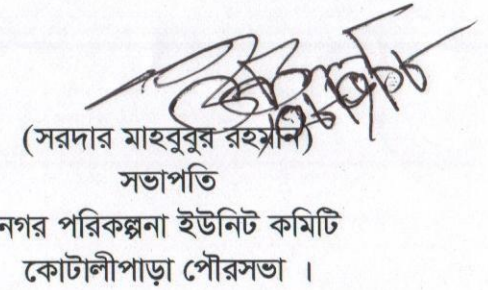 (সরদার মাহবুবুর রহমান)
সভাপতি
নগর পরিকল্পনা ইউনিট কমিটি
কোটালীপাড়া পৌরসভা ।